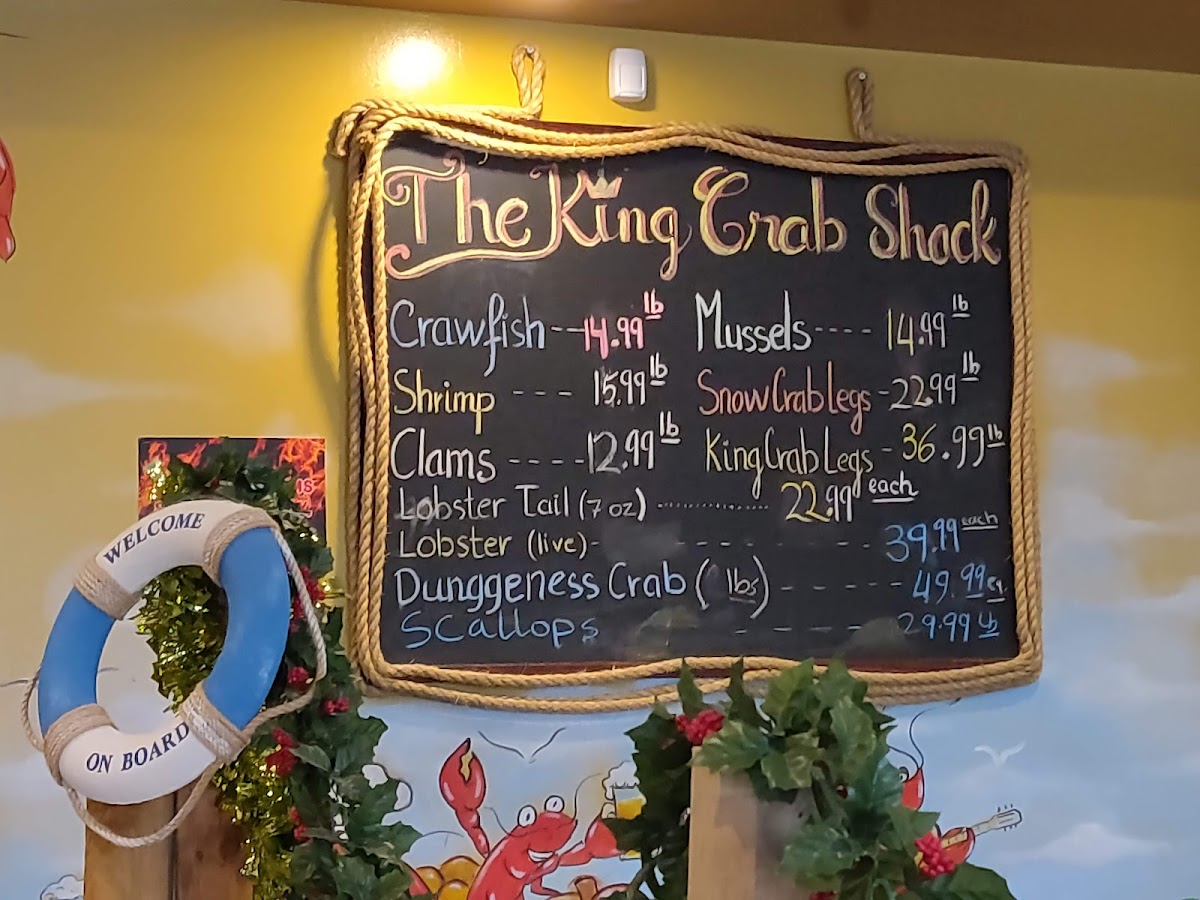 The King Crab Shack
Crawfish -- 14.99 lb
Shrimp --- 15.99 lb
Clams ---- 12.99 lb
Mussels ---- 14.99 lb
Snow Crab legs - 22.99 lb
King Crab Legs - 36.99 lb
Lobster Tail (7 oz) ------------ 22.99 each
Lobster (live)- ------ 39.99 each
Dunggeness Crab ( lbs) ------ 49.99 ea.
Scallops ---- 29.99 lb
WELCOME
ON BOARD